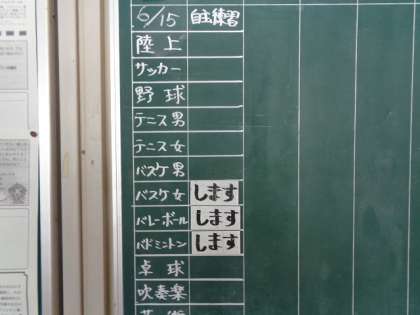 6/15 自主練習
陸上
サッカー
野球
テニス男
テニス女
バスケ男
バスケ女 します
バレーボール します
バドミントン します
卓球
吹奏楽